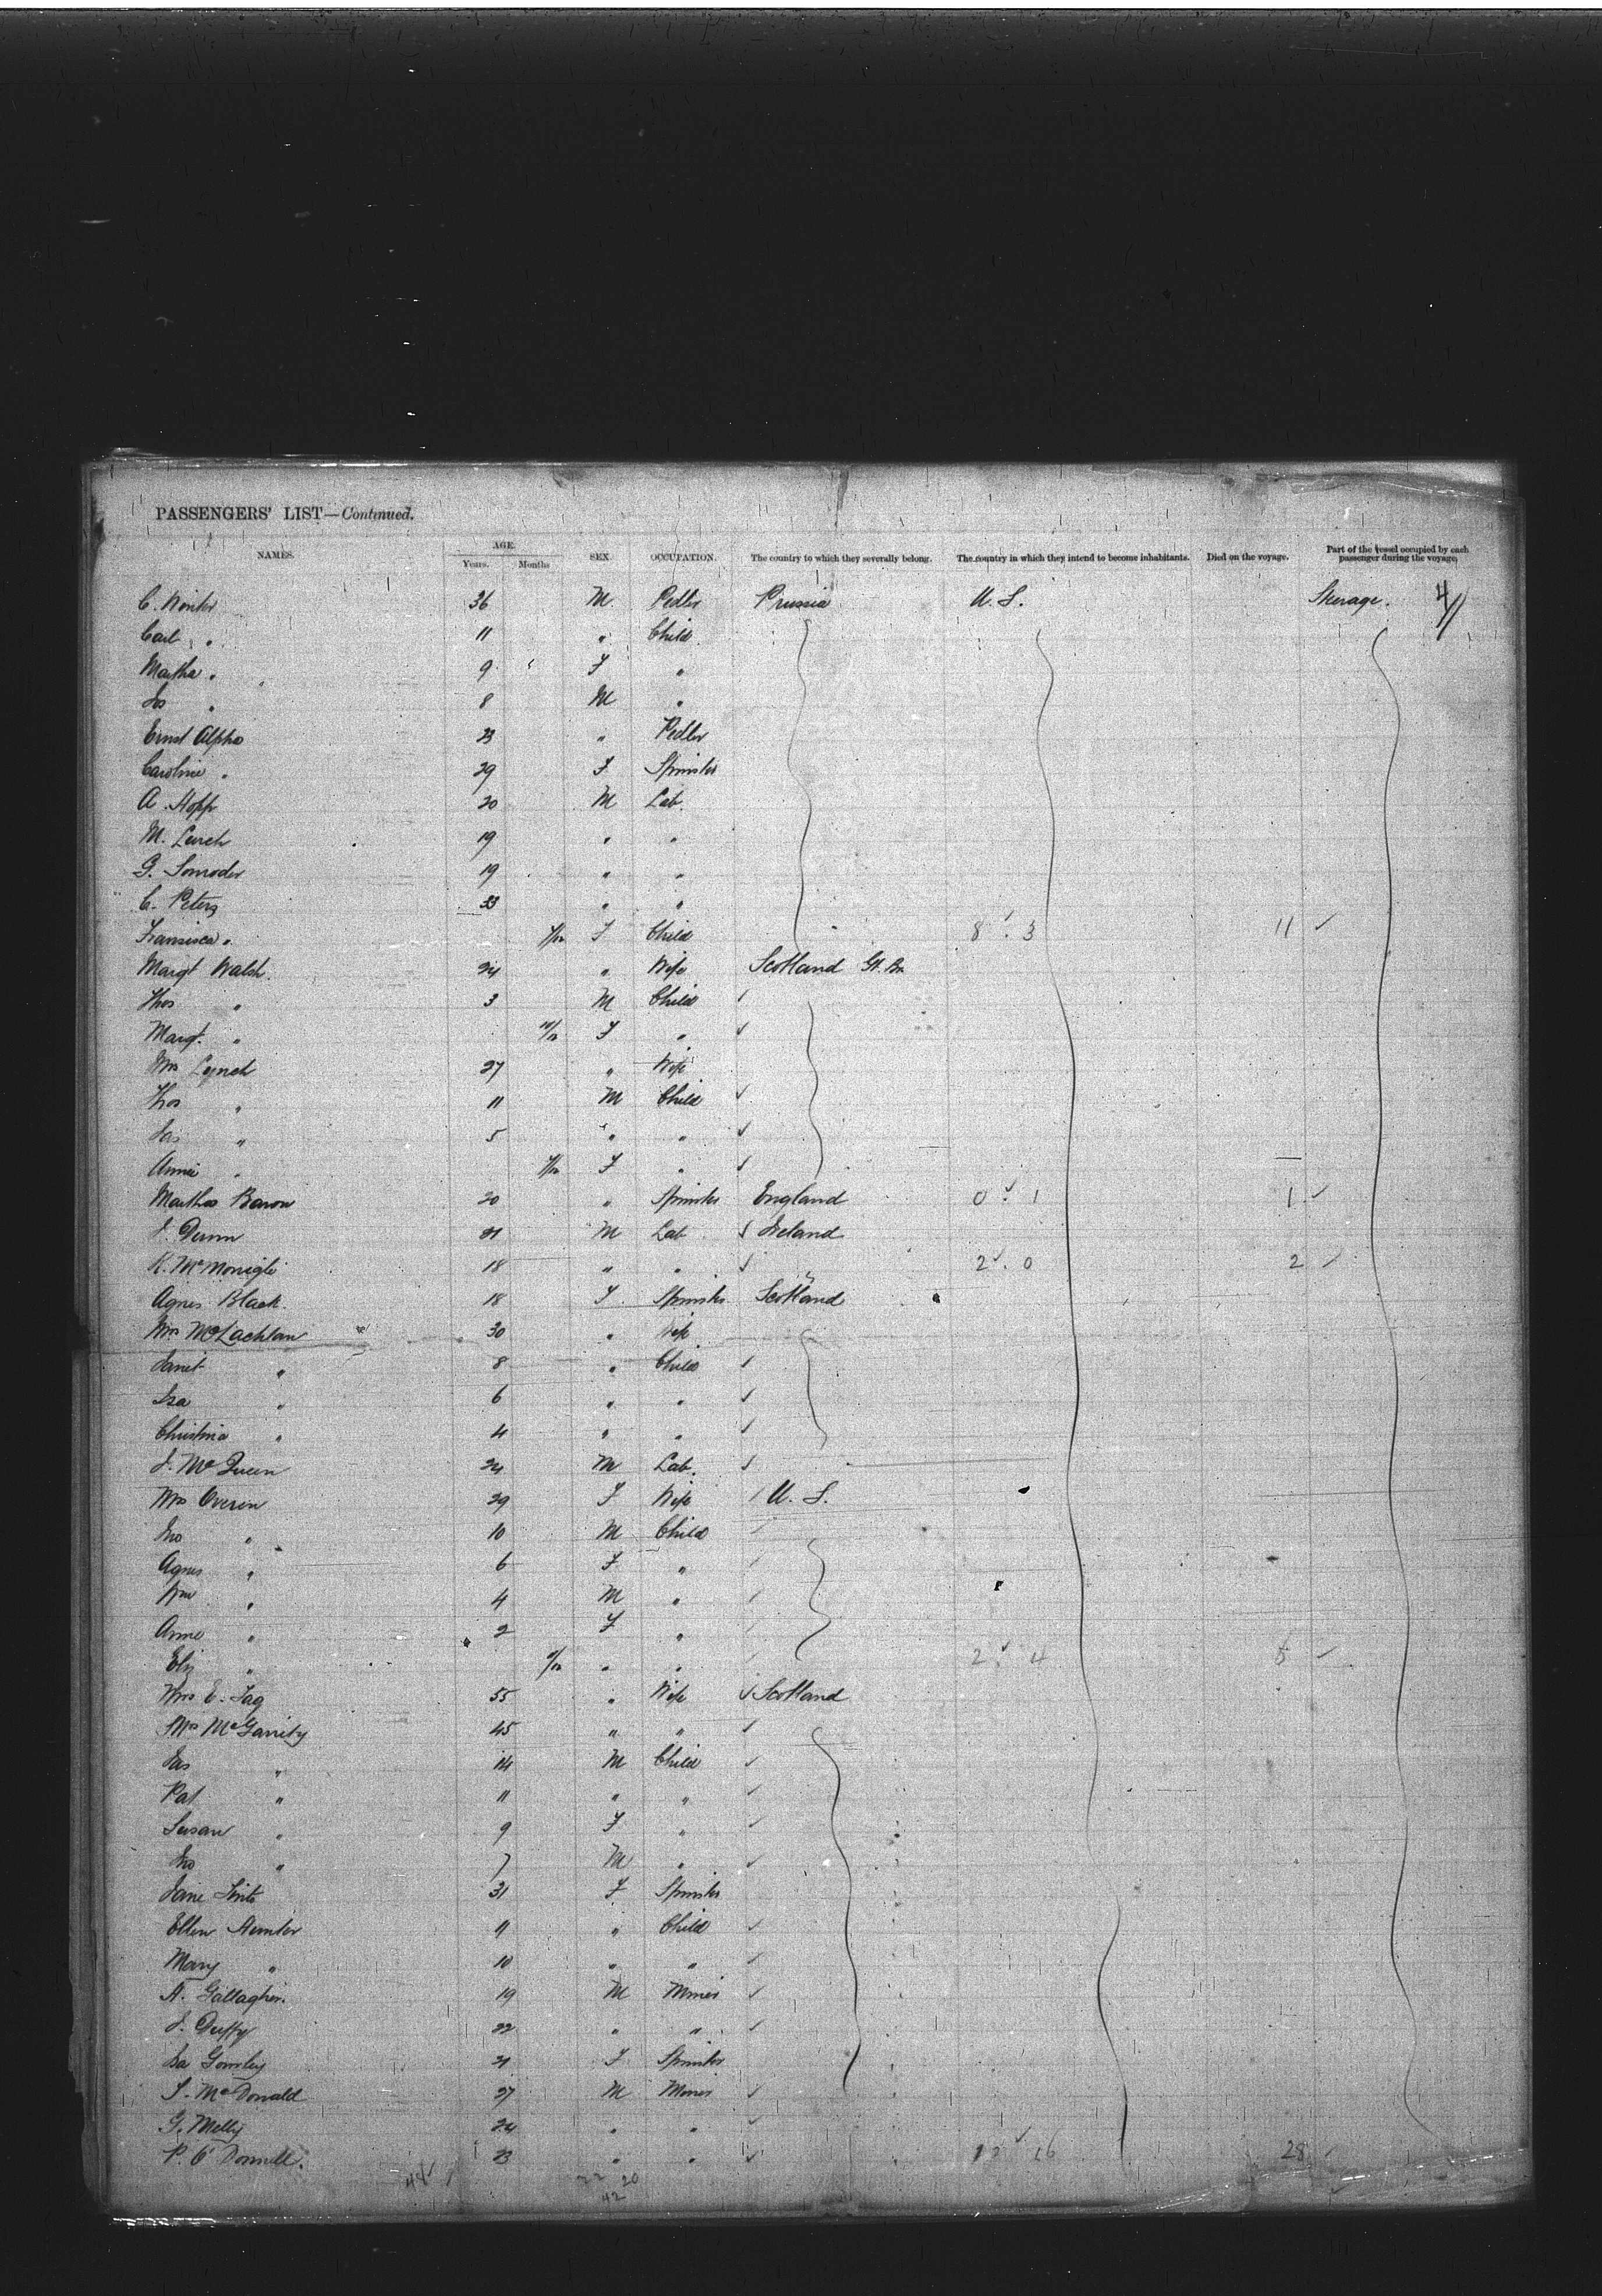 PASSENGERS' LIST—Continued.
NAMES. AGE. Years. Months SEX OCCUPATION. The country to which they severally belong. The country in which they intend to become inhabitants. Died on the voyage. Part of the vessel occupied by each passenger during the voyage.
C. Winter 36 M. Pedler Prussia U. S. Sterage. 4
Carl " 11 " Child
Martha " 9 F "
Jos " 8 M "
Ernst Alpha 23 " Pedler
Caroline " 29 F Spinster
A. Hopp 20 M Lab.
M. Lerch 19 " "
G. Somoder 19 " "
C. Peters 33 " "
Fransisca " F Child 8 . 3 11
Margt Walsh. 24 " Wife Scotland Gt. Bn
Thos " 3 M Child
Margt. " 10/12 F "
Mrs Lynch 27 " Wife
Thos " 11 M Child
Jas " 5 " "
Annie " F "
Martha Baron 20 " Spinster England 0 . 1 1
J. Dunn 21 M Lab Ireland
K. McMonigle 18 " " 2 . 0 2
Agnes Black. 18 F. Spinster Scotland
Mrs McLachlan 30 " Wife
Janet " 8 " Child
Isa " 6 " "
Christina " 4 " "
J. McQueen 24 M Lab.
Mrs Overin 29 F Wife U. S.
Jno " 10 M Child
Agnes " 6 F "
Wm " 4 M "
Anne " 2 F "
Eliz " " " 2 . 4 6
Mrs E. Tag 55 " Wife Scotland
Mrs McGarrity 45 " "
Jas " 14 M Child
Pat " 11 " "
Susan " 9 F "
Jno " 7 M "
Jane Tinto 31 F Spinster
Ellen Hunter 11 " Child
Mary " 10 " "
A. Gallagher. 19 M Miner
J. Duffy 22 " "
Isa Gormley 21 F Spinster
S. McDonald 27 M Miner
G. Melly 24 " "
P. O'Donnell. 23 " " 12 16 28
48 22 20
42